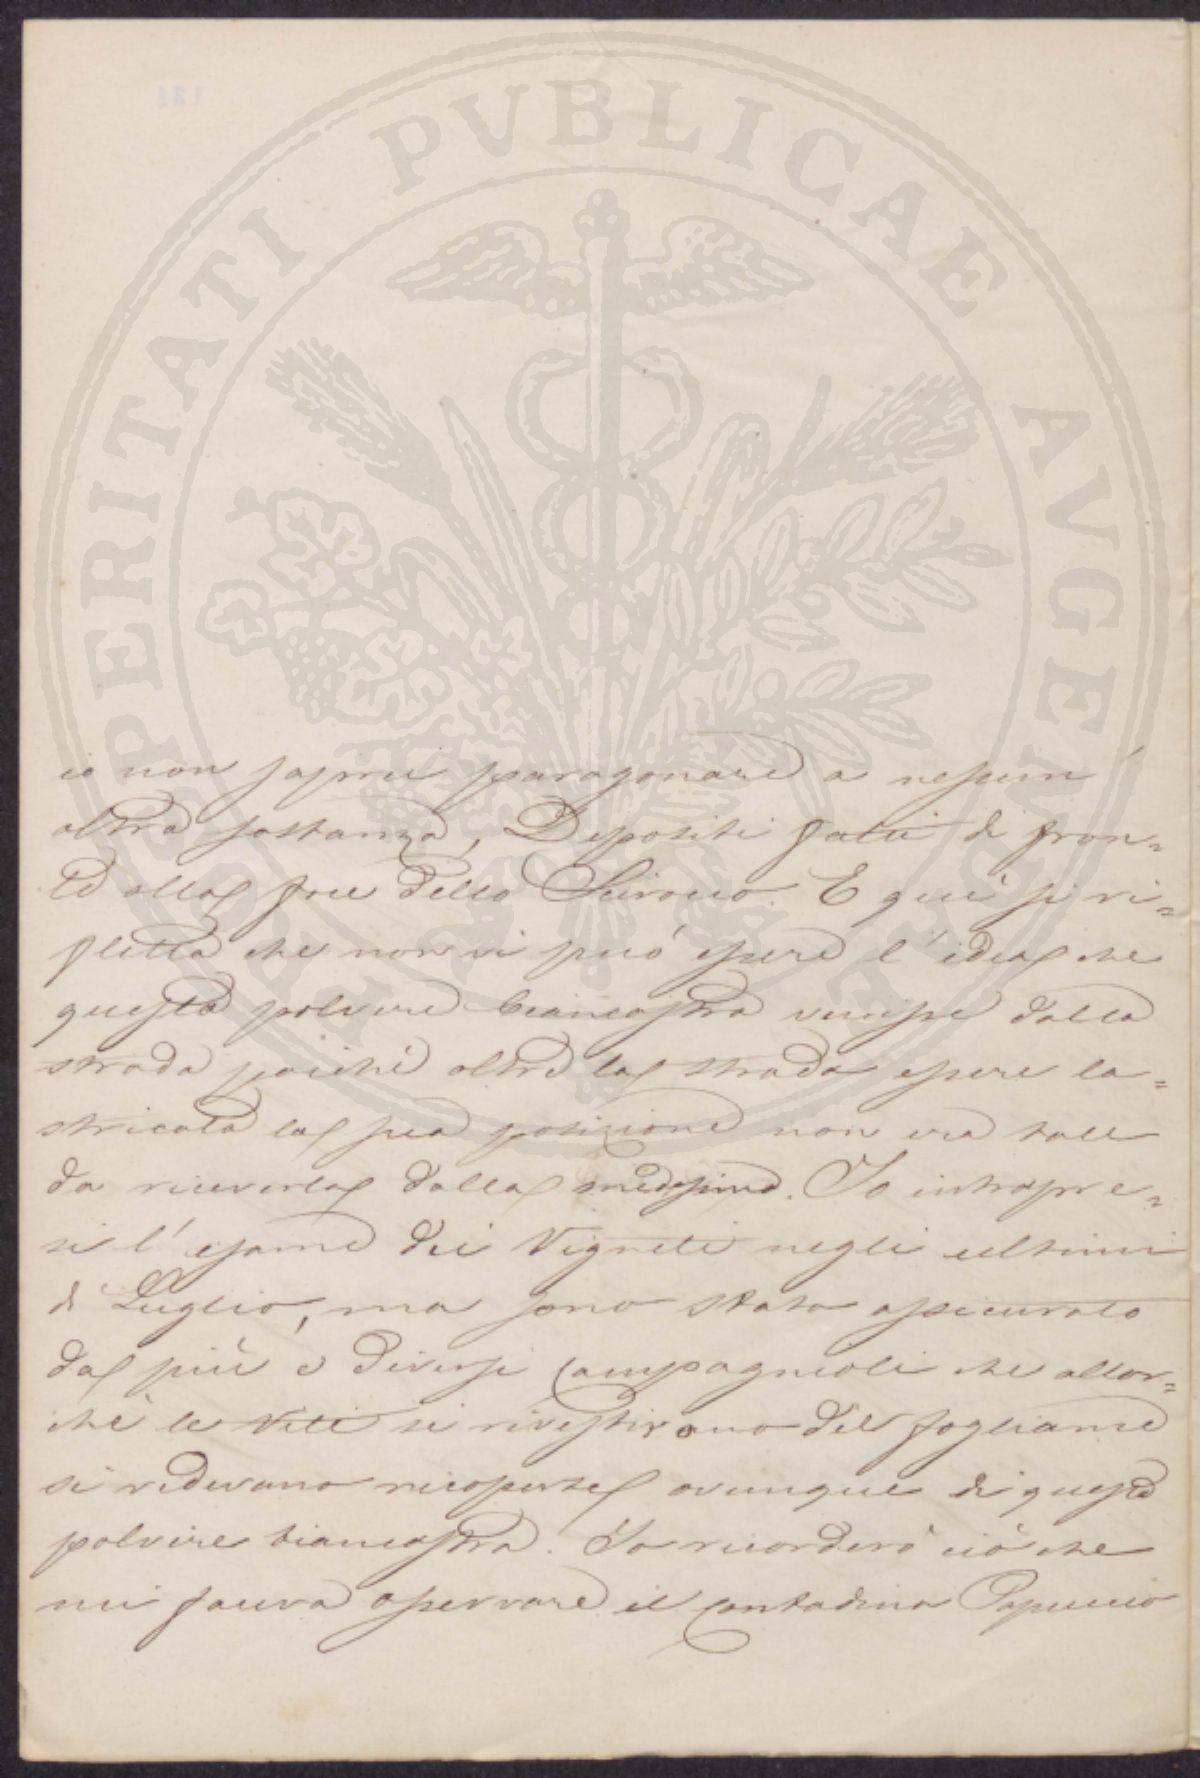 PROSPERITATI PVBLICAE AVGENDAE
io non saprei paragonare a nessun'
altra sostanza, Depositi fatti di fron=
te alla foce dello Scirocco. E quì si ri=
fletta che non vi può essere l'idea che
questa polvere biancastra venisse dalla
strada poichè oltre la strada essere la=
stricata la sua posizione non era tale
da riceverla dalla medesima. Io intrapre=
si l'esame dei Vigneti negli ultimi
di Luglio, ma sono stato assicurato
da più e diversi Campagnioli che allor=
chè le Viti si rivestivano del fogliame
si vedevano ricoperte ovunque di questa
polvere biancastra. Io ricorderò ciò che
mi faceva osservare il contadino Papuccio